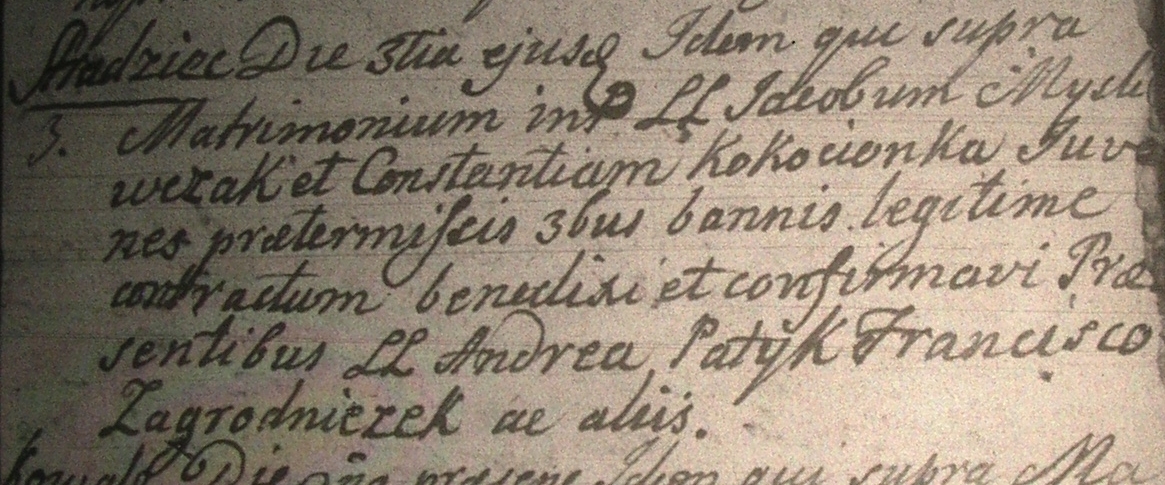 Stradziec Die 3tia ejusq Idem qui supra
3. Matrimonium int LL Jacobum Mysli
wczak et Constantiam Kokocionka Juve
nes prætermissis 3bus bannis legitime
contractum benedixi et confirmavi Præ
sentibus LL Andrea Patyk Francisco
Zagrodniczek ac aliis.
Die præsene Idem qui supra Ma